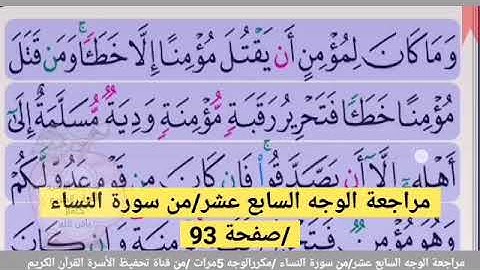 وَمَا كَانَ لِمُؤْمِنٍ أَن يَقْتُلَ مُؤْمِنًا إِلَّا خَطَـًٔا ۚ وَمَن قَتَلَ
مُؤْمِنًا خَطَـًٔا فَتَحْرِيرُ رَقَبَةٍ مُّؤْمِنَةٍ وَدِيَةٌ مُّسَلَّمَةٌ إِلَىٰٓ
أَهْلِهِۦٓ إِلَّآ أَن يَصَّدَّقُوا۟ ۚ فَإِن كَانَ مِن قَوْمٍ عَدُوٍّ لَّكُمْ
مراجعة الوجه السابع عشر/من سورة النساء
/صفحة 93
وَهُوَ مُؤْمِنٌ
مراجعة الوجه السابع عشر/من سورة النساء /مكررالوجه 5مرات /من قناة تحفيظ الأسرة القرآن الكريم